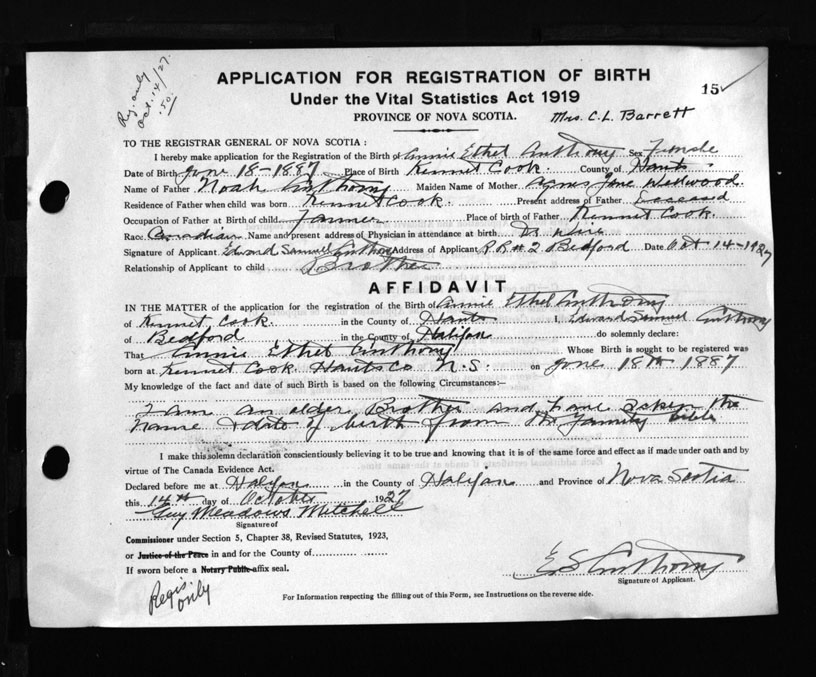 Reg. only
Oct. 14/27.
.50.
APPLICATION FOR REGISTRATION OF BIRTH
15
Under the Vital Statistics Act 1919
PROVINCE OF NOVA SCOTIA.
Mrs. C. L. Barrett
TO THE REGISTRAR GENERAL OF NOVA SCOTIA :
I hereby make application for the Registration of the Birth of Annie Ethel Anthony Sex Female
Date of Birth June 18-1887 Place of Birth Kennet Cook. County of Hants
Name of Father Noah Anthony Maiden Name of Mother Agnes Jane Wellwood.
Residence of Father when child was born Kennet Cook. Present address of Father Deceased
Occupation of Father at Birth of child Farmer Place of birth of Father Kennet Cook.
Race Canadian Name and present address of Physician in attendance at birth Dr
Signature of Applicant Edward Samuel Anthony Address of Applicant R.R #2 Bedford Date Oct 14-1927
Relationship of Applicant to child Brother
AFFIDAVIT
IN THE MATTER of the application for the registration of the Birth of Annie Ethel Anthony
of Kennet Cook. in the County of Hants I, Edward Samuel Anthony
of Bedford in the County of Halifax do solemnly declare:
That Annie Ethel Anthony Whose Birth is sought to be registered was
born at Kennet Cook Hants Co N.S. on June 18th 1887
My knowledge of the fact and date of such Birth is based on the following Circumstances:—
I am an older Brother and have taken the
name & date of birth from the family Bible
I make this solemn declaration conscientiously believing it to be true and knowing that it is of the same force and effect as if made under oath and by
virtue of The Canada Evidence Act.
Declared before me at Halifax in the County of Halifax and Province of Nova Scotia
this 14th day of October 1927
Guy Meadows Mitchell
Signature of
Commissioner under Section 5, Chapter 38, Revised Statutes, 1923,
or Justice of the Peace in and for the County of
If sworn before a Notary Public affix seal.
E S Anthony
Signature of Applicant.
Regis only
For Information respecting the filling out of this Form, see Instructions on the reverse side.